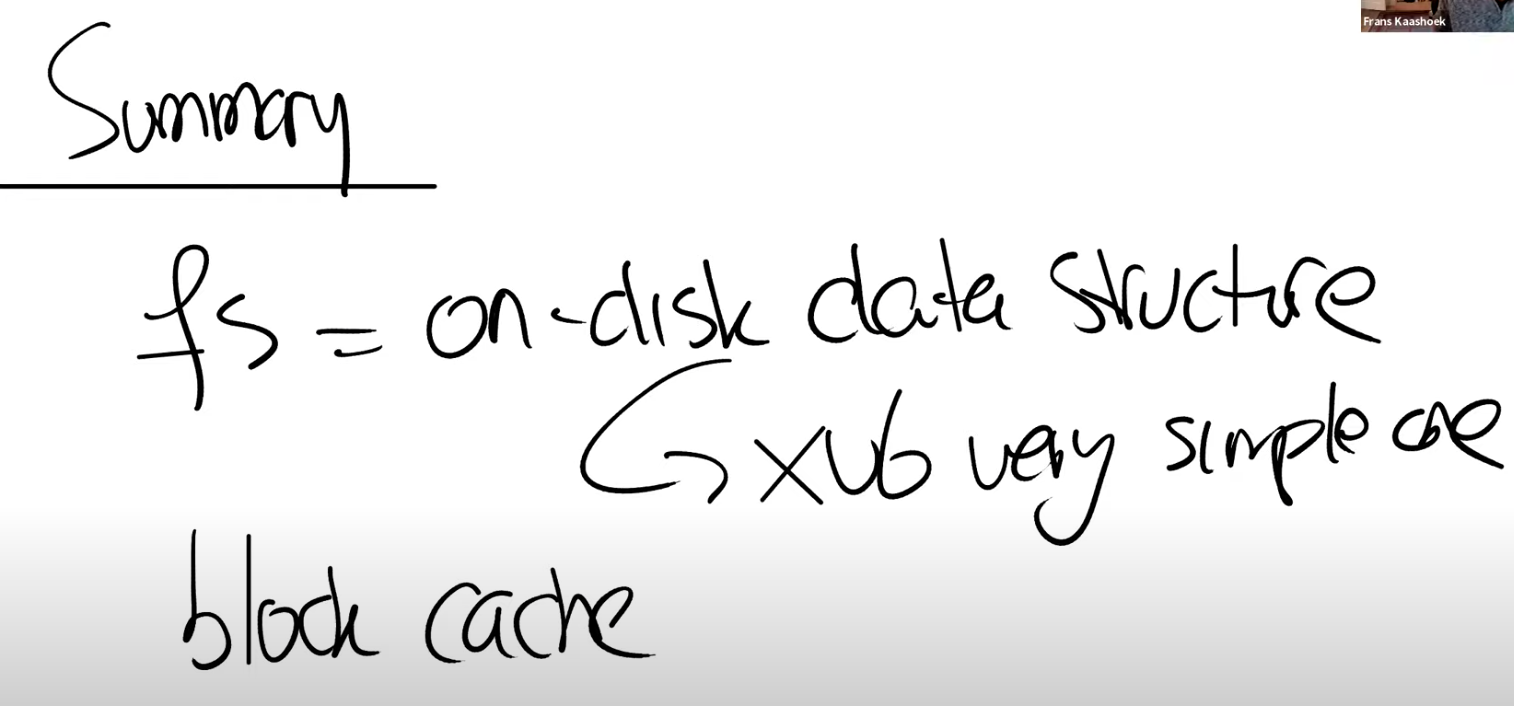 Frans Kaashoek
Summary
fs = on-disk data structure
↳ xv6 very simple one
block cache